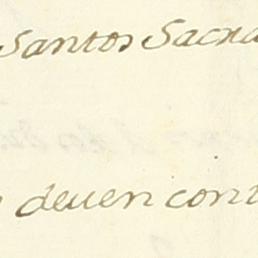 Santos Sacra
deuen cont